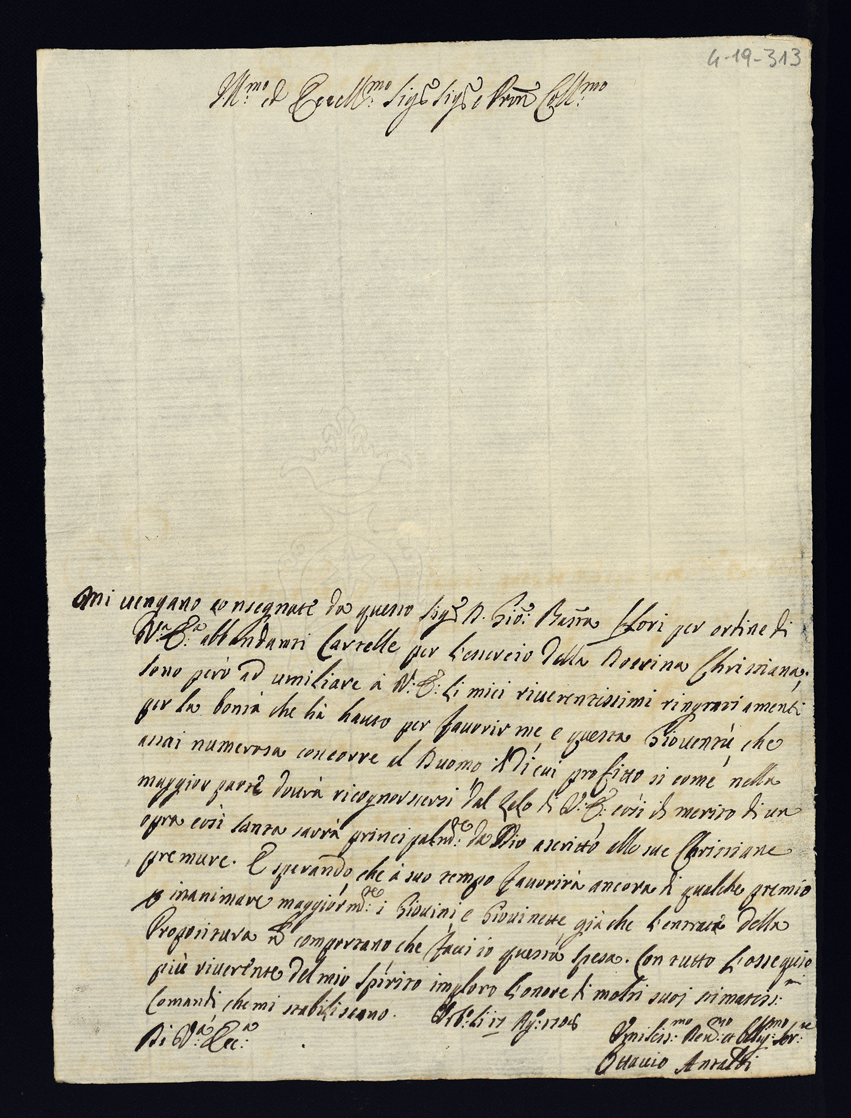 4-19-313
Ill.mo et Eccell.mo Sig.re Sig.re e Pron Coll.mo
Mi vengano consegnate da questo Sig.re D. Gio: Batta Flori per ordine di
V.a E.a abbondanti Cartelle per l'esercizio della Dottrina Christiana,
sono però ad umiliare à V.E. li miei riverentissimi ringratiamenti
per la bontà che hà hauto per favorirme e questa Gioventù che
assai numerosa concorre al Duomo Di cui profitto si come nella
maggior parte dovrà ricognoscersi dal Zelo di V.E. così il merito di un
opra così santa sarà principalm.te da Dio ascritto alle sue Christiane
premure. E sperando che à suo tempo favorirà ancora di qualche premio
p inanimare maggiorm.te i Giovini e Giovinette, già che l'entrate della
Propositura ñ comportano che facci io questa spesa. Con tutto l'ossequio
più riverente del mio spirito imploro l'onore di molti suoi stimatiss.mi
Comandi che mi stabiliscano. Urb.o li 17 Ag.o 1706
Di V.a Ecc.a
Umiliss.mo Dev.mo et Obblig.mo Ser.re
Ottavio Antaldi